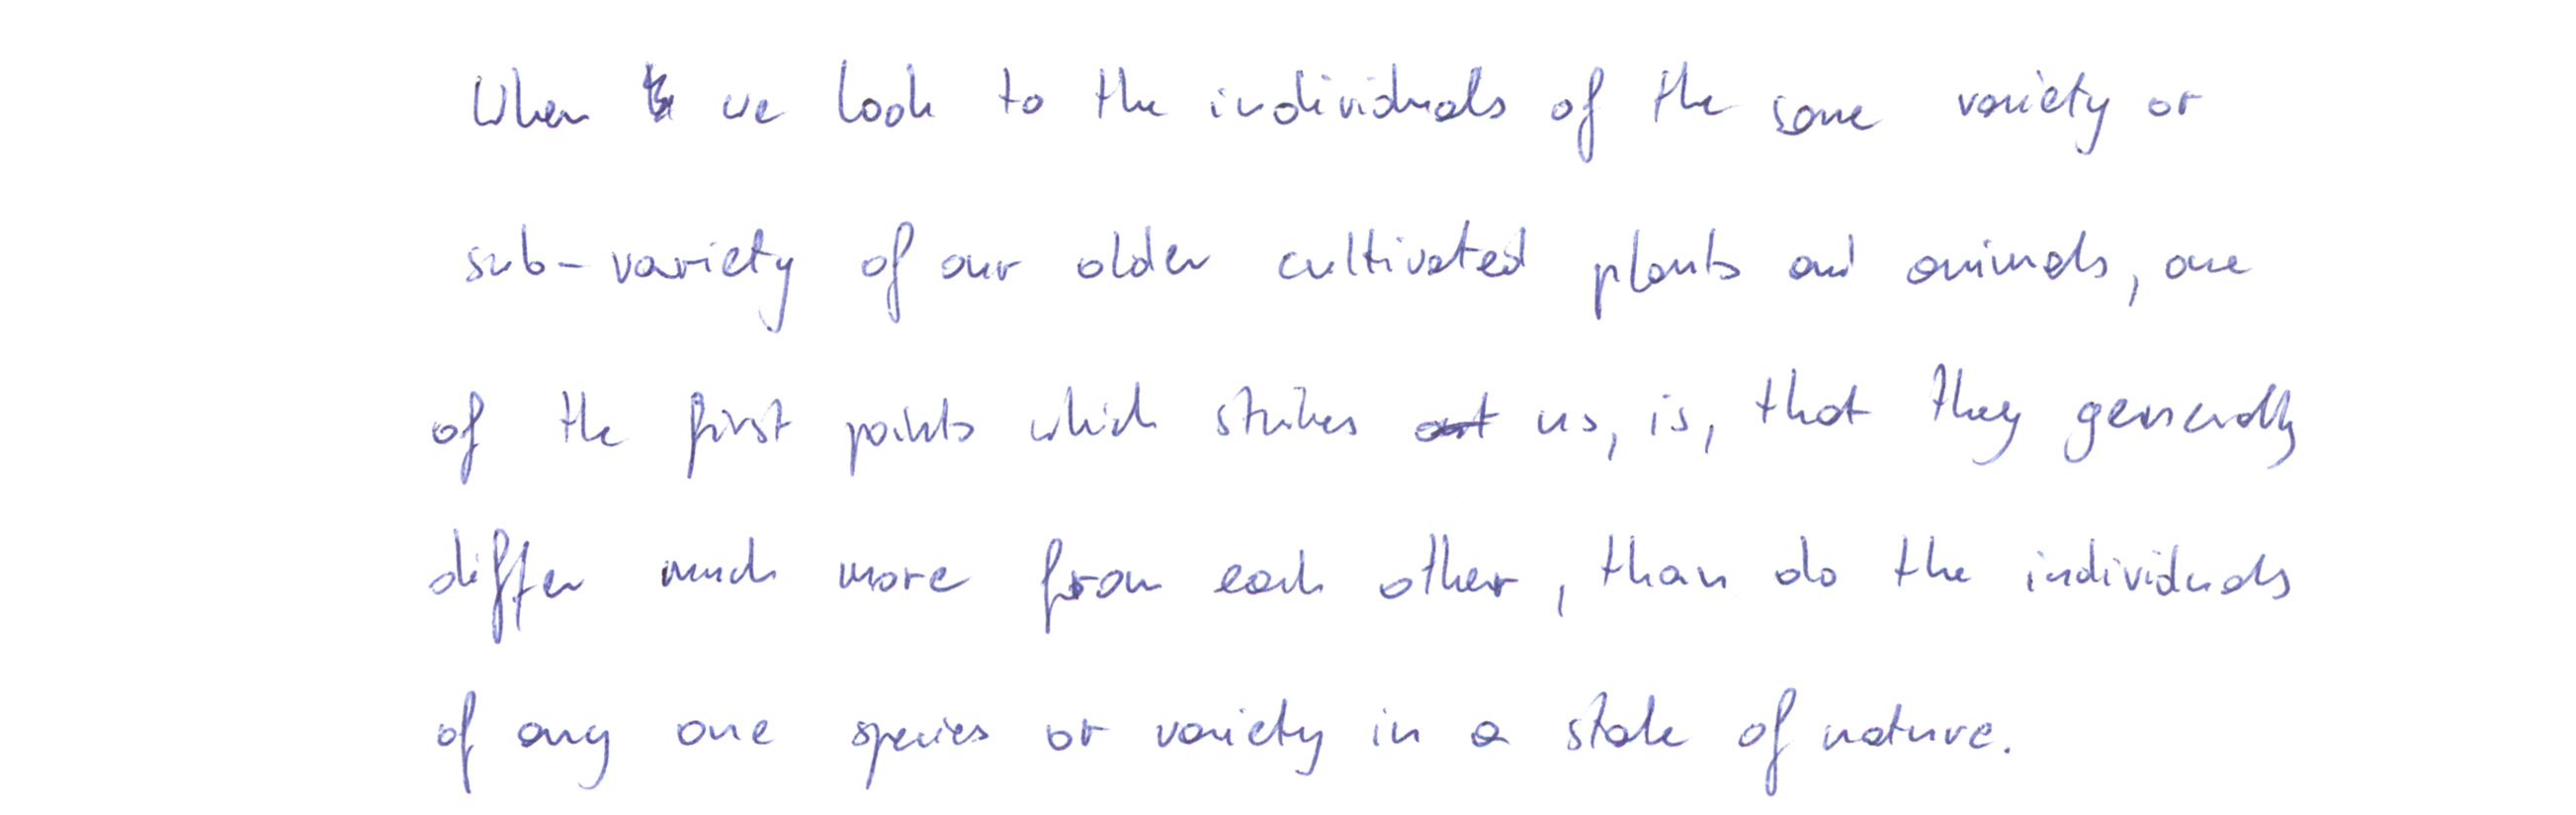 When we look to the individuals of the same variety or
sub-variety of our older cultivated plants and animals, one
of the first points which strikes us, is, that they generally
differ much more from each other, than do the individuals
of any one species or variety in a state of nature.